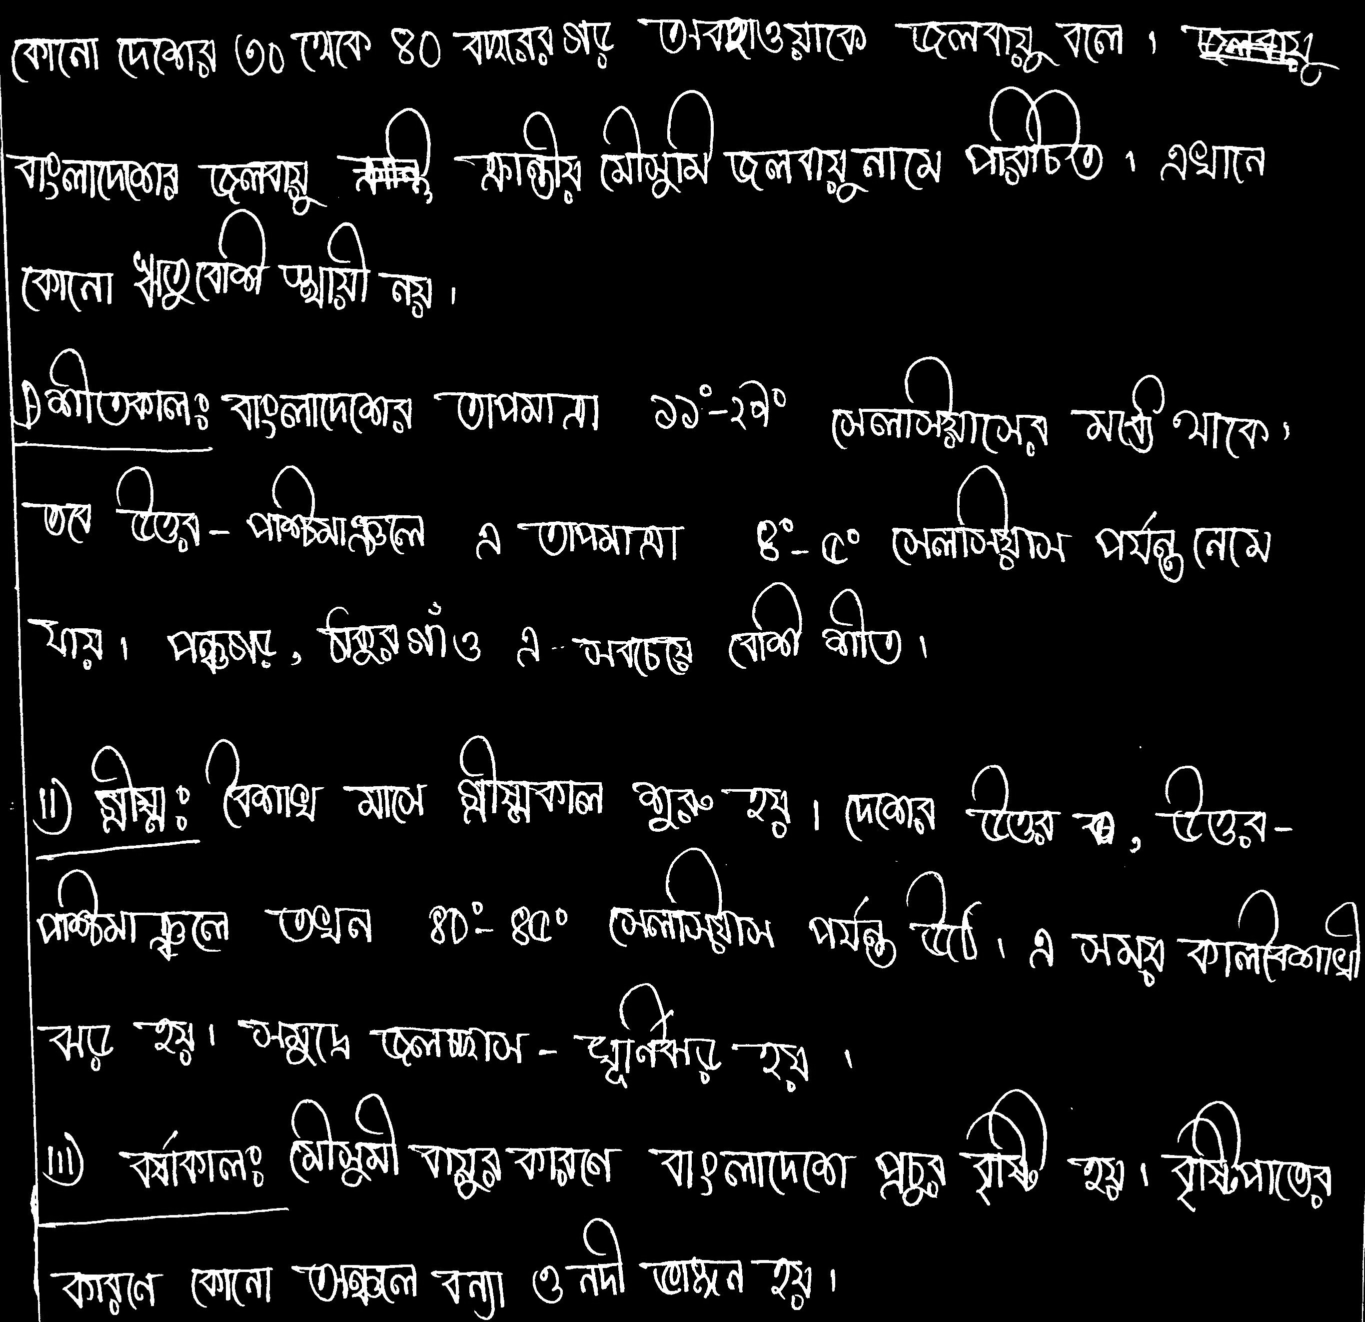 কোনো দেশের ৩০ থেকে ৪০ বছরের গড় আবহাওয়াকে জলবায়ু বলে। জলবায়ু
বাংলাদেশের জলবায়ু ক্রান্তীয় মৌসুমি জলবায়ু নামে পরিচিত। এখানে
কোনো ঋতু বেশি স্থায়ী নয়।
i) শীতকালঃ বাংলাদেশের তাপমাত্রা ১১°-২৭° সেলসিয়াসের মধ্যে থাকে,
তবে উত্তর-পশ্চিমাঞ্চলে এ তাপমাত্রা ৪°-৫° সেলসিয়াস পর্যন্ত নেমে
যায়। পঞ্চগড়, ঠাকুরগাঁও এ সবচেয়ে বেশি শীত।
ii) গ্রীষ্মঃ বৈশাখ মাসে গ্রীষ্মকাল শুরু হয়। দেশের উত্তর, উত্তর-
পশ্চিমাঞ্চলে তখন ৪০°-৪৫° সেলসিয়াস পর্যন্ত উঠে। এ সময় কালবৈশাখী
ঝড় হয়। সমুদ্রে জলচ্ছাস - ঘূর্ণিঝড় হয়।
iii) বর্ষাকালঃ মৌসুমী বায়ুর কারণে বাংলাদেশে প্রচুর বৃষ্টি হয়। বৃষ্টিপাতের
কারণে কোনো অঞ্চলে বন্যা ও নদী ভাঙ্গন হয়।